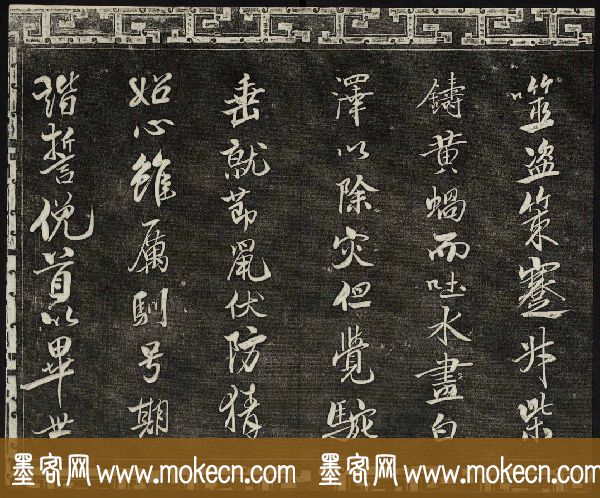 筮盗策蹇升柴
鑄黄蝸而吐水畫白
澤以除灾但覺駝
垂就節鼠伏防猜
妬心雖厲馴号期
諧誓俛首以畢世
墨客网 www.mokecn.com 墨客网 www.mokecn.com